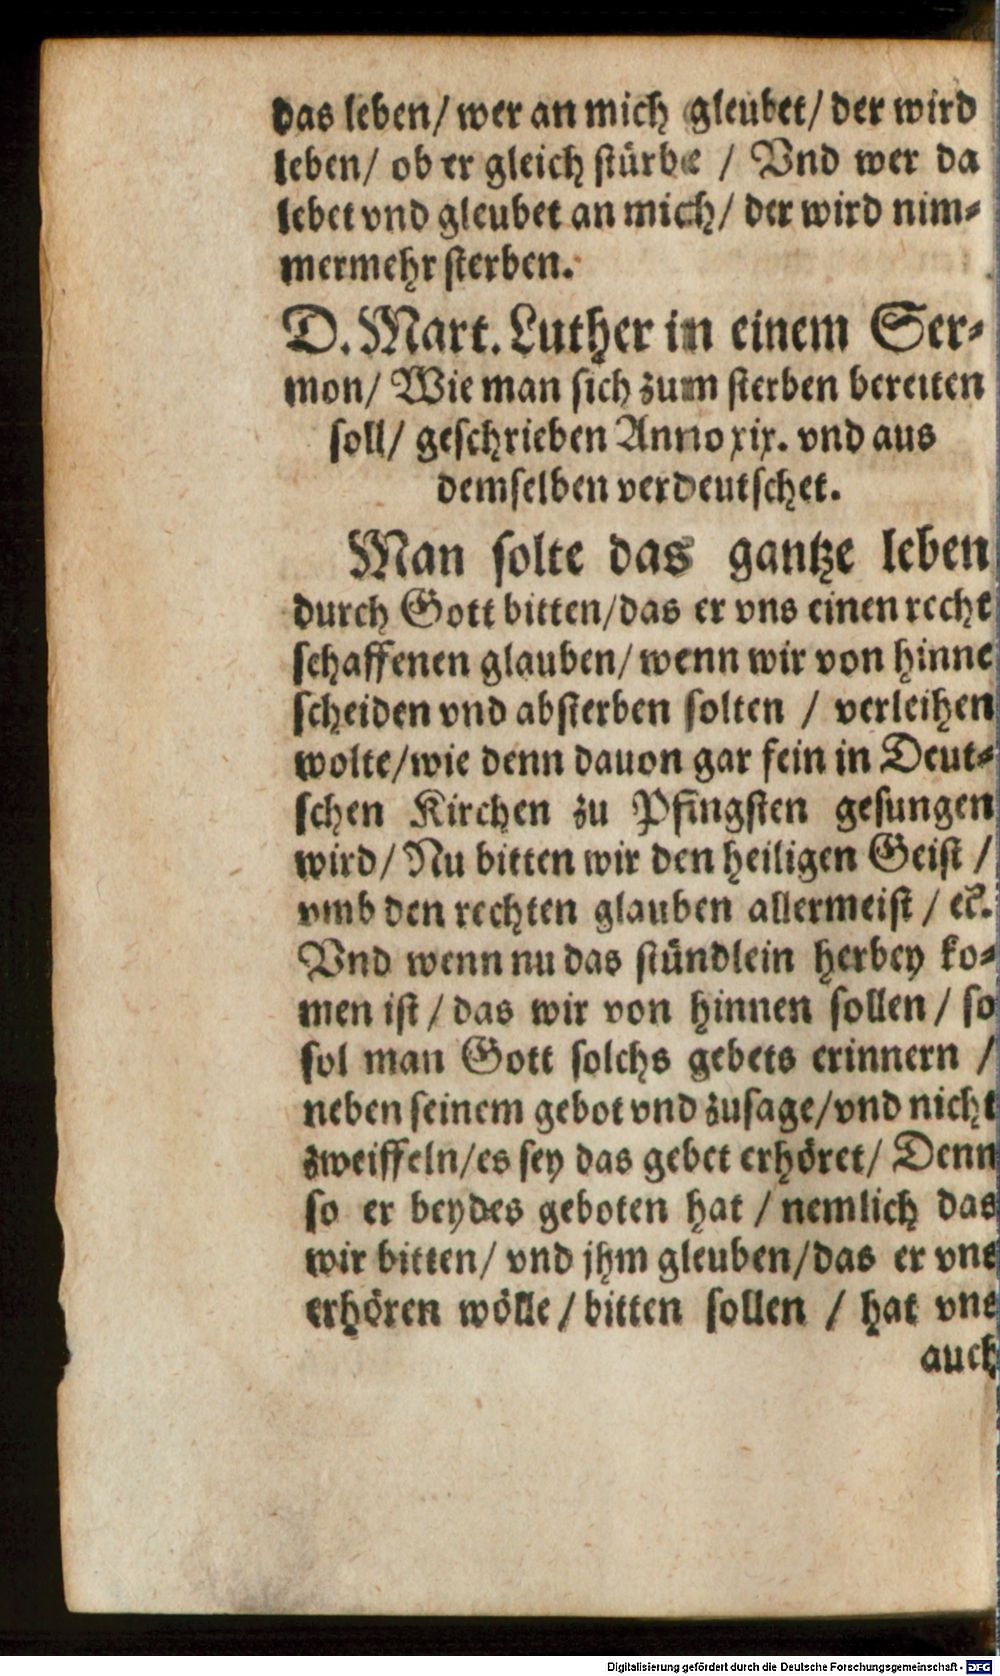 das leben/ wer an mich gleubet/ der wird
leben/ ob er gleich stürbe / Vnd wer da
lebet vnd gleubet an mich/ der wird nim-
mermehr sterben.
D. Mart. Luther in einem Ser-
mon/ Wie man sich zum sterben bereiten
soll/ geschrieben Anno xix. vnd aus
demselben verdeutschet.
Man solte das gantze leben
durch Gott bitten/das er vns einen recht
schaffenen glauben/ wenn wir von hinne
scheiden vnd absterben solten / verleihen
wolte/wie denn dauon gar fein in Deut-
schen Kirchen zu Pfingsten gesungen
wird/ Nu bitten wir den heiligen Geist /
vmb den rechten glauben allermeist / ec.
Vnd wenn nu das stündlein herbey ko-
men ist / das wir von hinnen sollen / so
sol man Gott solchs gebets erinnern /
neben seinem gebot vnd zusage/vnd nicht
zweiffeln/es sey das gebet erhöret/ Denn
so er beydes geboten hat / nemlich das
wir bitten/ vnd jhm gleuben/das er vns
erhören wölle / bitten sollen / hat vns
auch
Digitalisierung gefördert durch die Deutsche Forschungsgemeinschaft - DFG